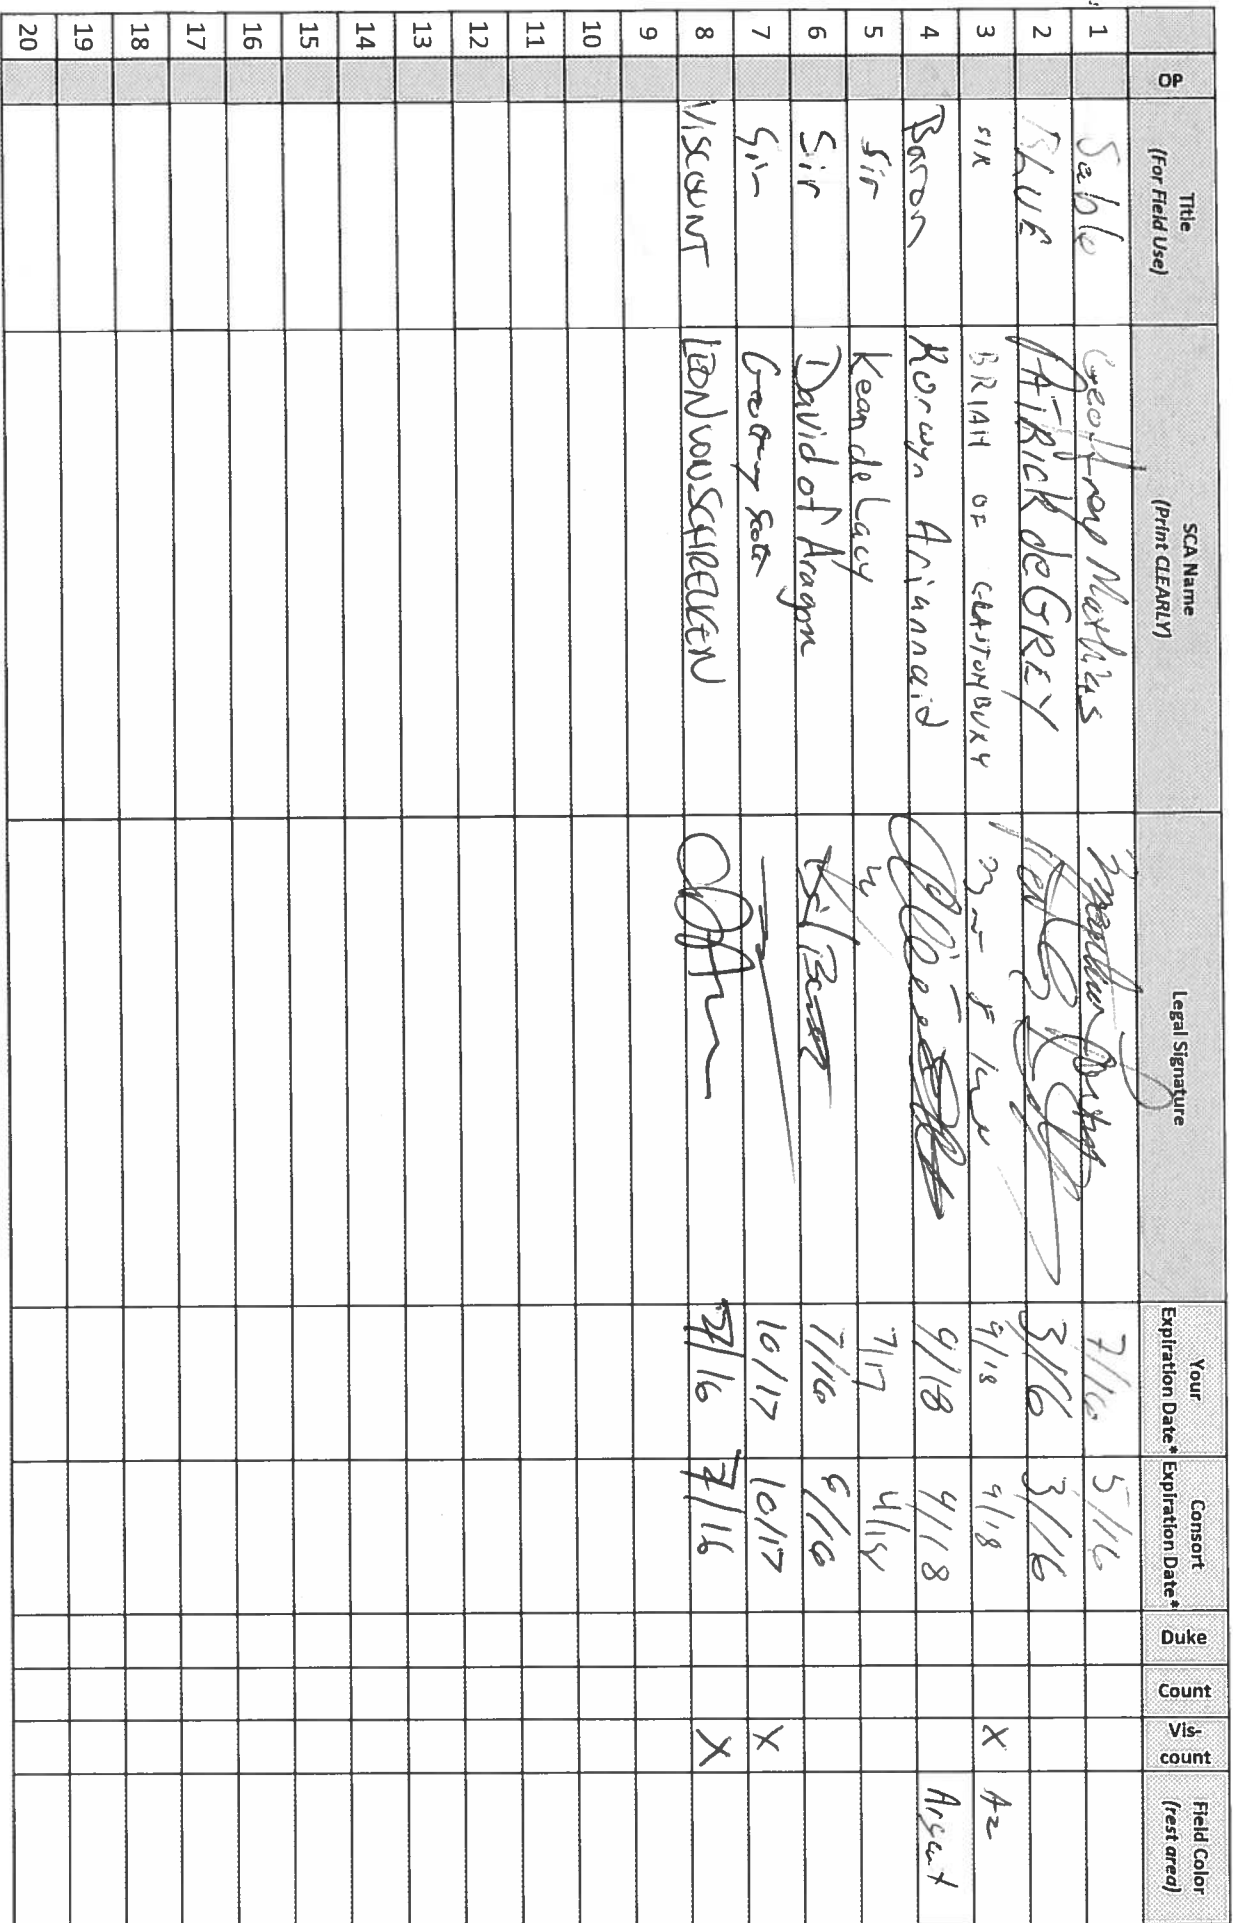 OP Title (For Field Use) SCA Name (Print CLEARLY) Legal Signature Your Expiration Date* Consort Expiration Date* Duke Count Vis-count Field Color (rest area)
1 Sable Geoffrey Mathias 7/16 5/16
2 BLUE PATRICK de GREY 3/16 3/16
3 SIR BRIAN OF GLASTONBURY 9/18 9/18 X Az
4 Baron Korwyn Ariannaid 9/18 4/18 Argent
5 Sir Kean de Lacy 7/17
6 Sir David of Aragon 7/16 6/16
7 Sir Scott 10/17 10/17 X
8 VISCOUNT LEON VON SCHRELKEN 7/16 7/16 X
9
10
11
12
13
14
15
16
17
18
19
20